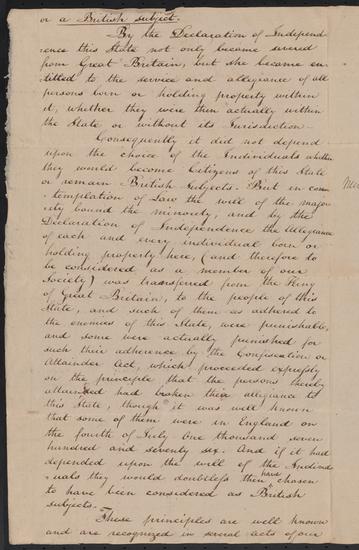 or a British subject.
By the Declaration of Independ-
ence this State not only became severed
from Great Britain, but she became en-
titled to the service and allegiance of all
persons born or holding property within
it, whether they were then actually within
the State or without its Jurisdiction
Consequently it did not depend
upon the choice of the Individuals whether
they would become Citizens of this State
or remain British Subjects. But in con-
templation of Law the will of the major-
ity bound the minority, and by the
Declaration of Independence the Allegiance
of each and every individual born or
holding property here, (and therefore to
be considered as a member of our
Society) was transferred from the King
of Great Britain, to the people of this
State, and such of them as adhered to
the enemies of this State, were punishable,
and some were actually punished for
such their adherence by the Confiscation or
Attainder Act, which proceeded expressly
on the principle that the persons thereby
attainted had broken their allegiance to
this State, though it was well known
that some of them were in England on
the fourth of July one thousand seven
hundred and seventy six. And if it had
depended upon the will of the Individ-
uals they would doubtless then have chosen
to have been considered as British
subjects.
These principles are well known
and are recognized in several acts of our